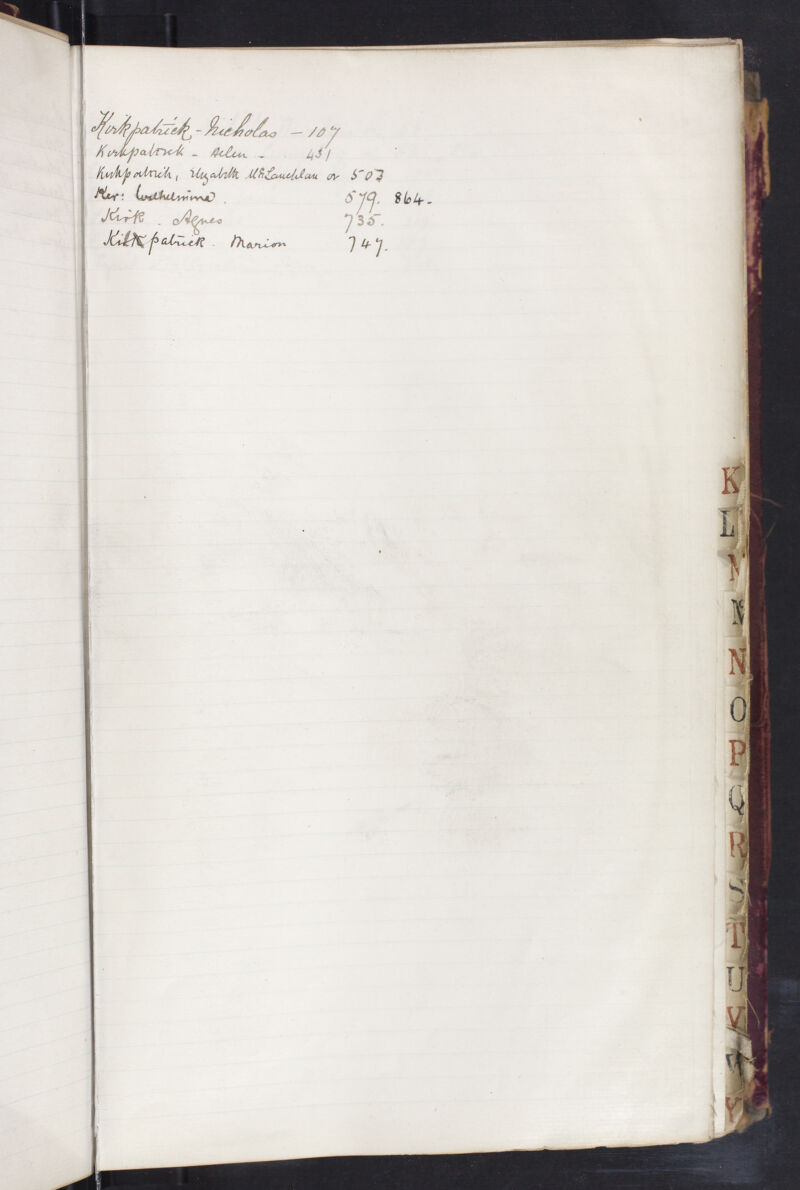 Kirkpatrick - Nicholas - 107
Kirkpatrick - Helen - 431
Kirkpatrick, Elizabeth McLauchlan or 503
Ker: Wilhelmina. 579. 864.
Kirk. Agnes 735.
Kirkpatrick. Marion 747.
K
L
M
N
O
P
Q
R
S
T
U
V
W
Y